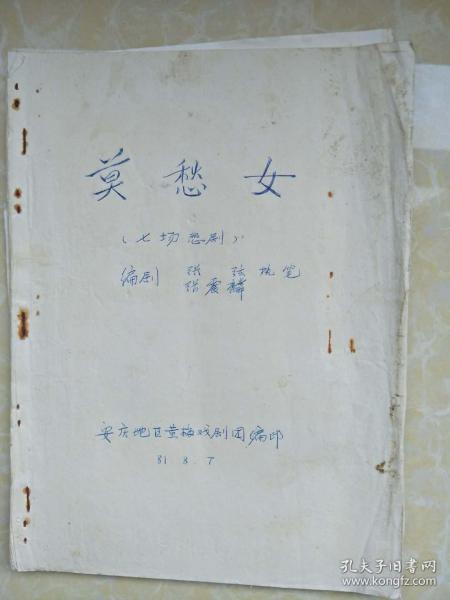 莫愁女
(七场悲剧)
编剧 张弦执笔
张震麟
安庆地区黄梅戏剧团编印
81.3.7
孔夫子旧书网
www.kongfz.com